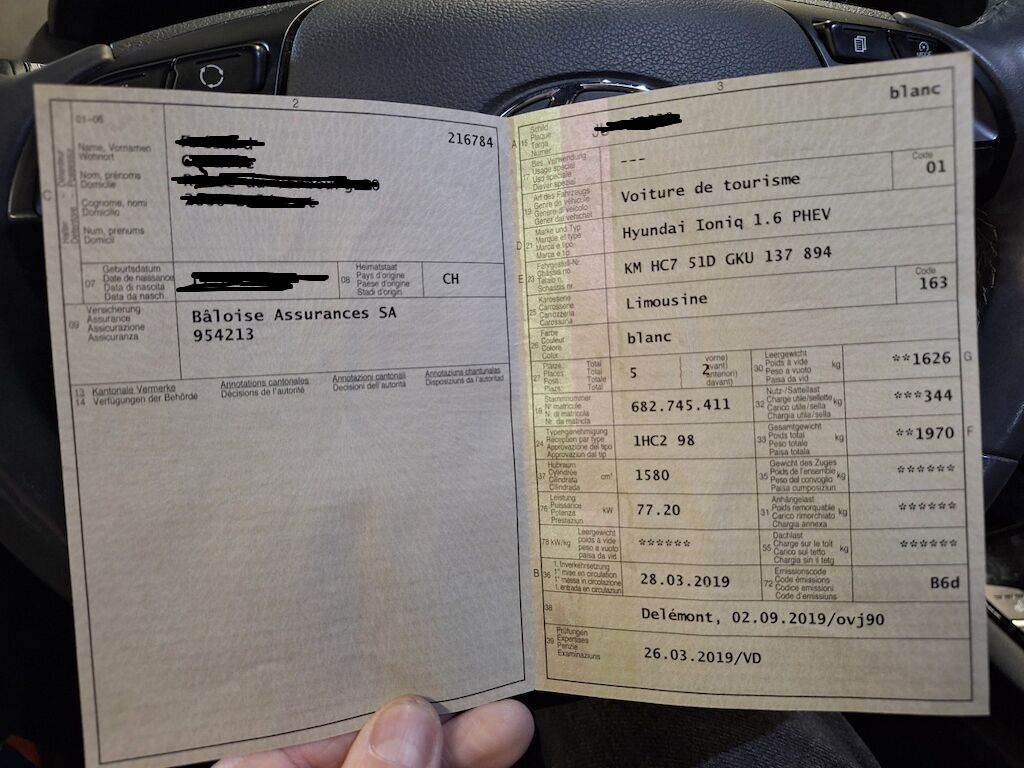 2
01–06
Name, Vornamen
Wohnort
Nom, prénoms
Domicile
Cognome, nomi
Domicilio
Num, prenums
Domicil
C
216784
07
Geburtsdatum
Date de naissance
Data di nascita
Data da nasch.
08
Heimatstaat
Pays d'origine
Paese d'origine
Stadi d'origin
CH
09
Versicherung
Assurance
Assicurazione
Assicuranza
Bâloise Assurances SA
954213
13 Kantonale Vermerke
14 Verfügungen der Behörde
Annotations cantonales
Décisions de l'autorité
Annotazioni cantonali
Decisioni dell'autorità
Annotaziuns chantunalas
Disposiziuns da l'autoritad
3
blanc
A 15
Schild
Plaque
Targa
Numer
17
Bes. Verwendung
Usage spécial
Uso speciale
Diever spezial
---
19
Art des Fahrzeugs
Genre de véhicule
Genere di veicolo
Gener dal vehichel
Voiture de tourisme
Code
01
D 21
Marke und Typ
Marque et type
Marca e tipo
Marca e tip
Hyundai Ioniq 1.6 PHEV
E 23
Fahrgestell-Nr.
Châssis no
Telaio n.
Schassis nr.
KM HC7 51D GKU 137 894
25
Karosserie
Carrosserie
Carrozzeria
Carossaria
Limousine
Code
163
26
Farbe
Couleur
Colore
Colur
blanc
27
Plätze: Total
Places: Total
Posti: Totale
Plazs: Total
5
vorne)
avant)
anteriori)
davant)
2
30
Leergewicht
Poids à vide
Peso a vuoto
Paisa da vid
kg
**1626
G
18
Stammnummer
N° matricule
N. di matricola
Nr. da matricla
682.745.411
32
Nutz-/Sattellast
Charge utile/sellette
Carico utile/sella
Chargia utila/sella
kg
***344
24
Typengenehmigung
Réception par type
Approvazione del tipo
Approvaziun dal tip
1HC2 98
33
Gesamtgewicht
Poids total
Peso totale
Paisa totala
kg
**1970
F
37
Hubraum
Cylindrée
Cilindrata
Cilindrada
cm³
1580
35
Gewicht des Zuges
Poids de l'ensemble
Peso del convoglio
Paisa cumposiziun
kg
******
76
Leistung
Puissance
Potenza
Prestaziun
kW
77.20
31
Anhängelast
Poids remorquable
Carico rimorchiato
Chargia annexa
kg
******
78 kW/kg
Leergewicht
poids à vide
peso a vuoto
paisa da vid
******
55
Dachlast
Charge sur le toit
Carico sul tetto
Chargia sin il tetg
kg
******
B 36
1. Inverkehrsetzung
1re mise en circulation
1a messa in circolazione
1. entrada en circulaziun
28.03.2019
72
Emissionscode
Code émissions
Codice emissioni
Code d'emissiuns
B6d
38
Delémont, 02.09.2019/ovj90
39
Prüfungen
Expertises
Perizie
Examinaziuns
26.03.2019/VD